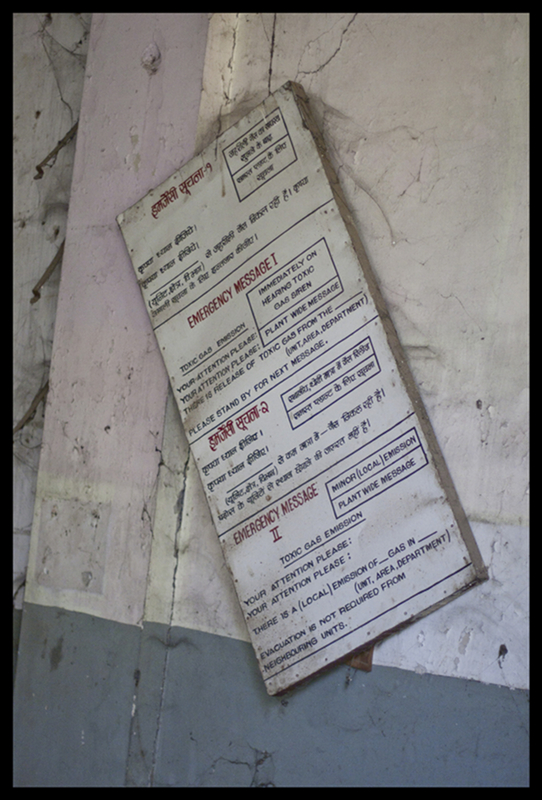 इमर्जेंसी सूचना-१
जहरीली गैस का सायरन
सुनने के बाद
समस्त प्लान्ट के लिए
सूचना
कृपया ध्यान दीजिये।
कृपया ध्यान दीजिये।
(यूनिट, क्षेत्र, विभाग) से जहरीली गैस निकल रही है। कृपया
अगली सूचना के लिए इन्तजार कीजिए।
EMERGENCY MESSAGE I
IMMEDIATELY ON
HEARING TOXIC
GAS SIREN
PLANT WIDE MESSAGE
TOXIC GAS EMISSION
YOUR ATTENTION PLEASE:
YOUR ATTENTION PLEASE:
THERE IS RELEASE OF TOXIC GAS FROM THE
(UNIT, AREA, DEPARTMENT)
PLEASE STAND BY FOR NEXT MESSAGE.
इमर्जेंसी सूचना-२
समस्त प्लान्ट के लिए सूचना
कृपया ध्यान दीजिये।
कृपया ध्यान दीजिये।
(यूनिट, क्षेत्र, विभाग) से कम मात्रा में - गैस निकल रही है।
के यूनिटों से स्थान छोड़ने की जरूरत नहीं है।
EMERGENCY MESSAGE
II
MINOR (LOCAL) EMISSION
PLANT WIDE MESSAGE
TOXIC GAS EMISSION
YOUR ATTENTION PLEASE:
YOUR ATTENTION PLEASE:
THERE IS A (LOCAL) EMISSION OF__GAS IN ___
(UNIT, AREA, DEPARTMENT)
EVACUATION IS NOT REQUIRED FROM
NEIGHBOURING UNITS.